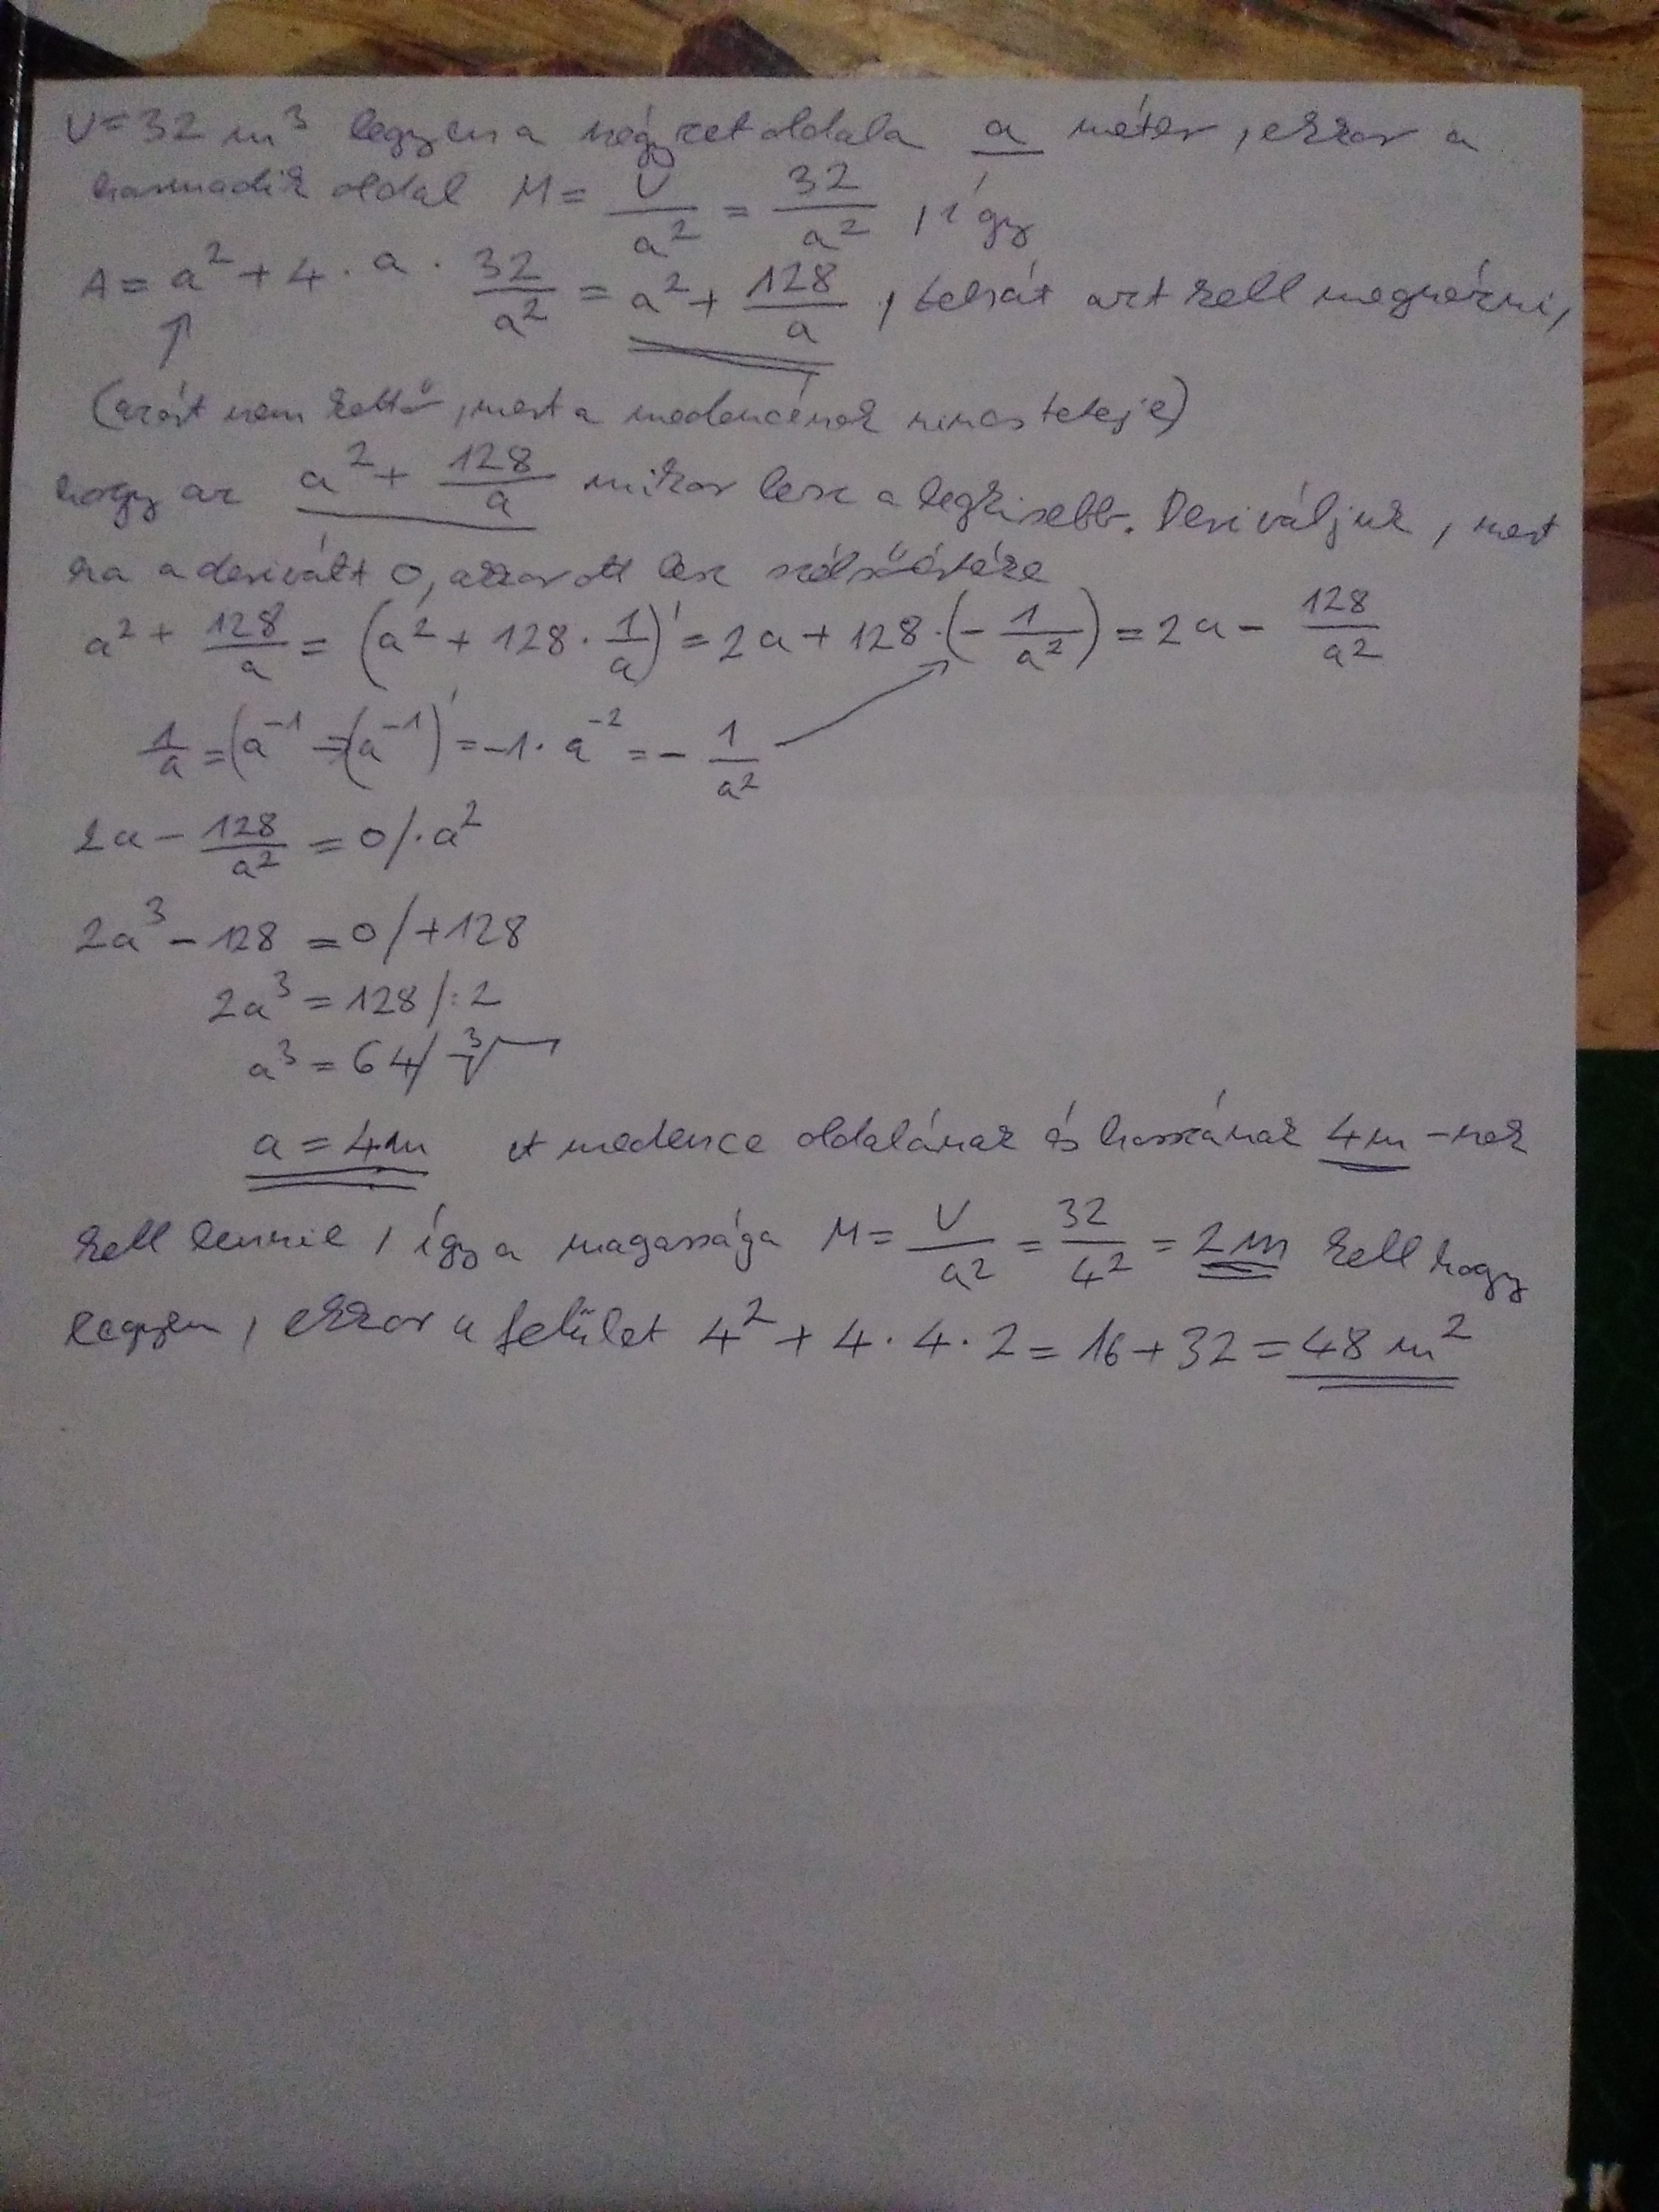 V = 32 m³ legyen a négyzet oldala a méter, ekkor a
harmadik oldal M = V/a² = 32/a², így
A = a² + 4 · a · 32/a² = a² + 128/a, tehát azt kell megnézni,
↑
(azért nem kettő, mert a medencének nincs teteje)
hogy az a² + 128/a mikor lesz a legkisebb. Deriváljuk, mert
ha a derivált 0, akkor ott lesz szélsőértéke
a² + 128/a = (a² + 128 · 1/a)' = 2a + 128 · (- 1/a²) = 2a - 128/a²
1/a = (a⁻¹ = (a⁻¹)' = -1 · a⁻² = - 1/a²
2a - 128/a² = 0 / · a²
2a³ - 128 = 0 / +128
2a³ = 128 / :2
a³ = 64 / ³√
a = 4m A medence oldalának és hosszának 4m -nek
kell lennie, így a magassága M = V/a² = 32/4² = 2 m kell hogy
legyen, ekkor a felület 4² + 4 · 4 · 2 = 16 + 32 = 48 m²
K